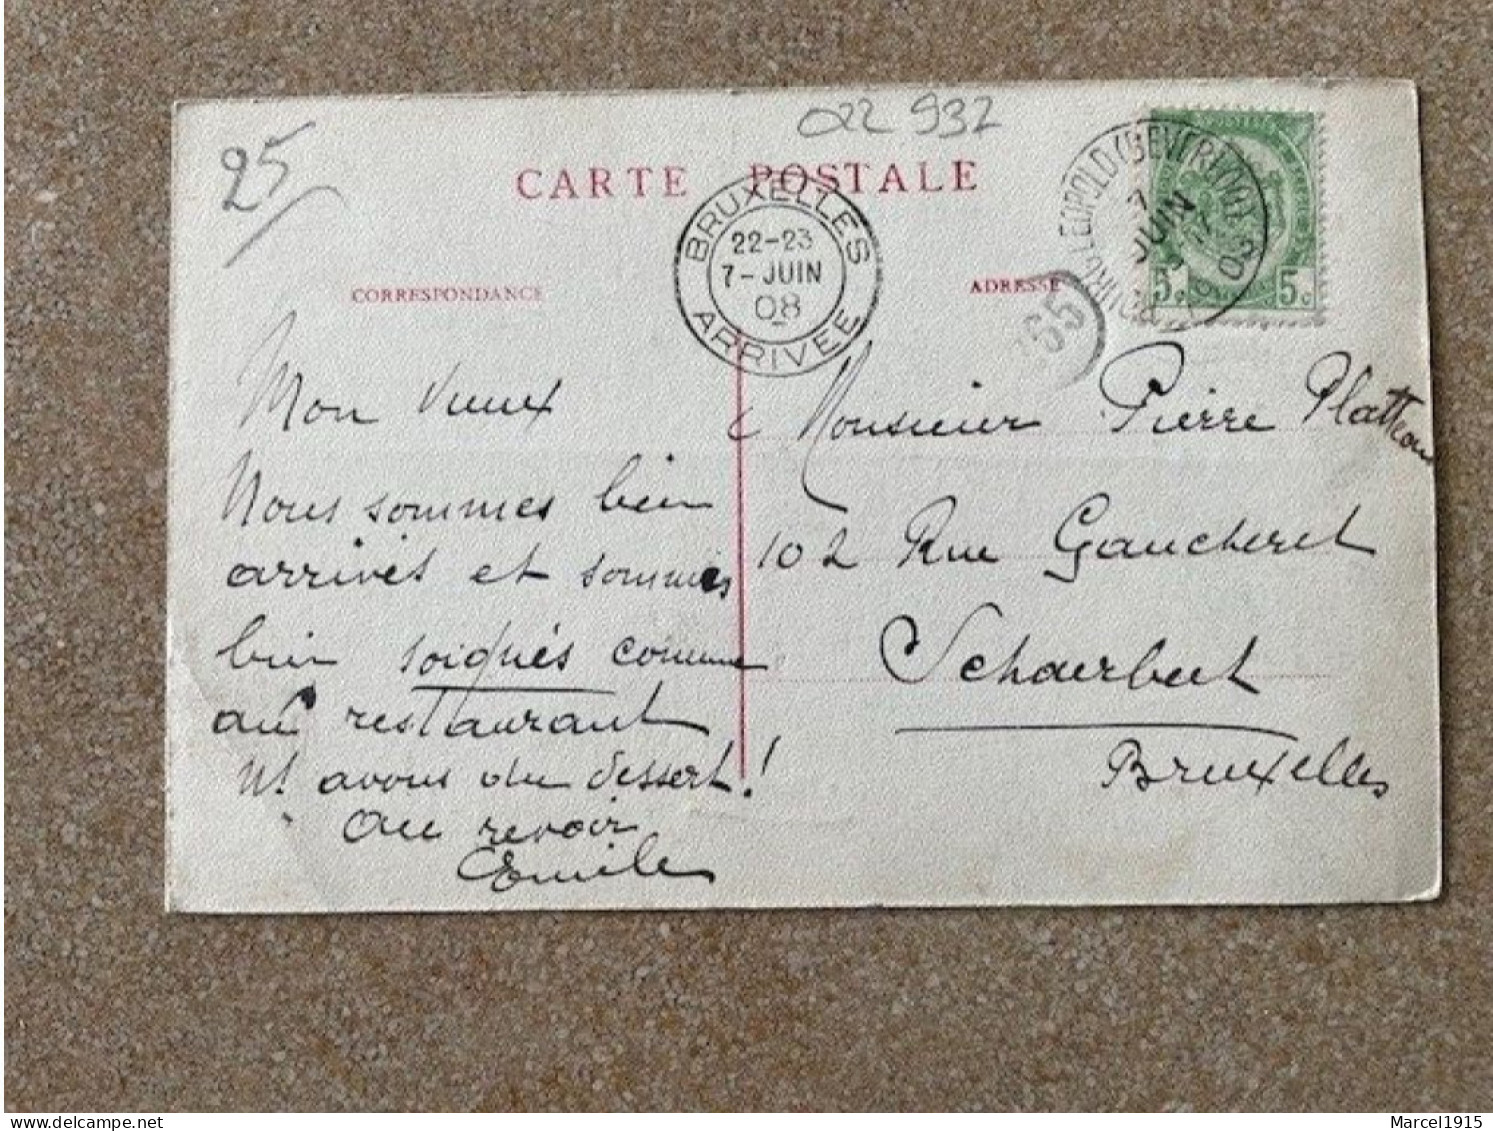 25
022 932
CARTE POSTALE
BRUXELLES
22-23
7-JUIN
08
ARRIVEE
LEOPOLD (BEVERLOO)
7
JUIN
5c 5c
CORRESPONDANCE
ADRESSE
65
Mon Vieux
Nous sommes bien
arrivés et sommes
bien soignés comme
au restaurant
Ns avons du dessert!
Au revoir
Emile
Monsieur Pierre Platteau
102 Rue Gaucheret
Schaerbeek
Bruxelles
Marcel1915